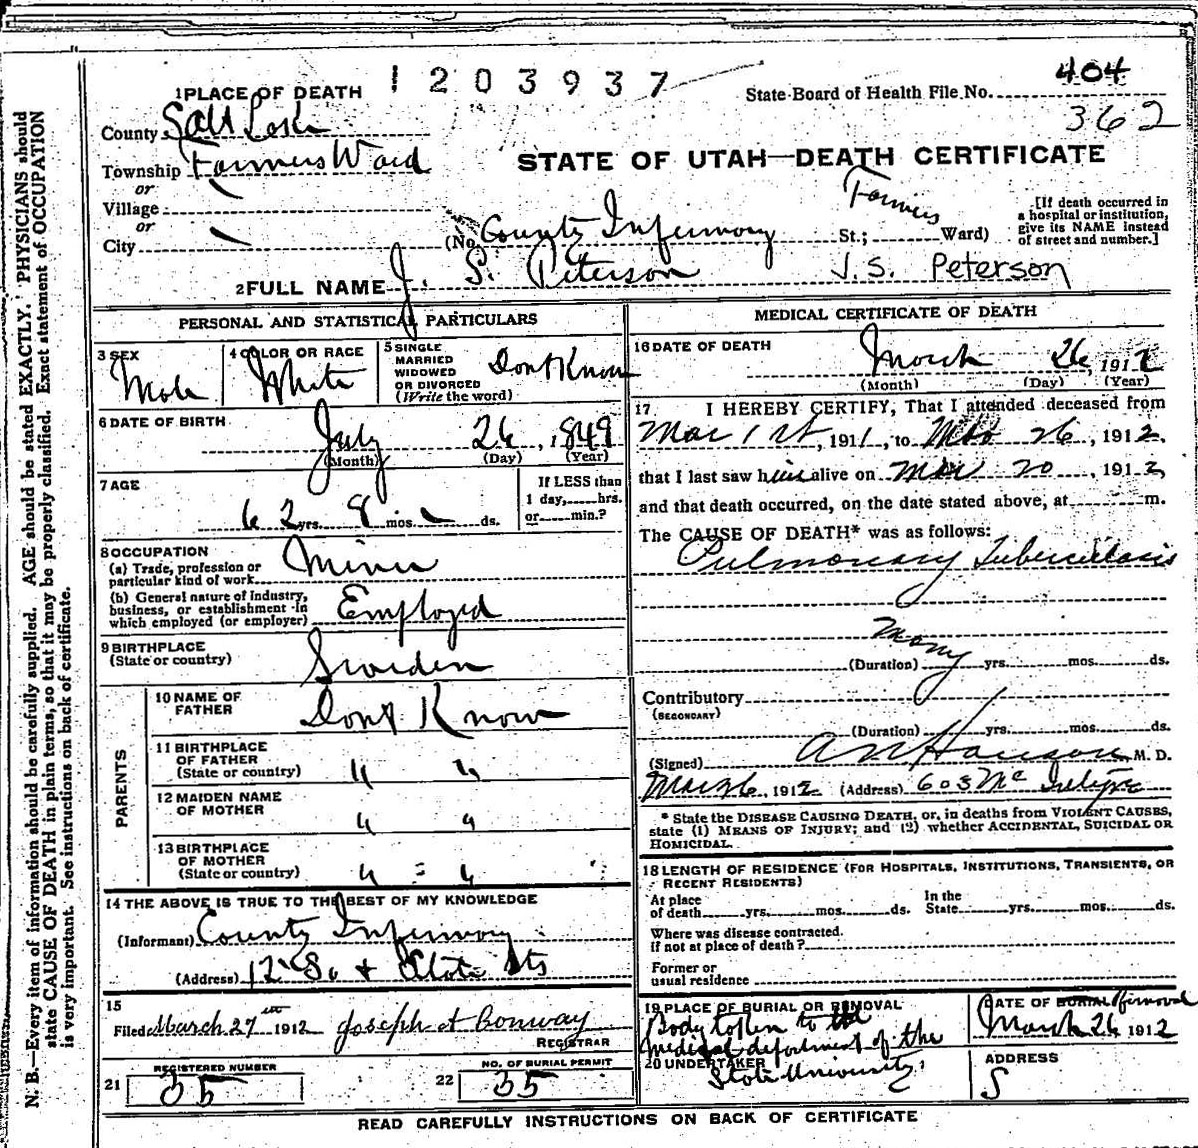 1 2 0 3 9 3 7
1 PLACE OF DEATH
State Board of Health File No. 404
362
County Salt Lake
Township Farmers Ward
or
Village
or
City
STATE OF UTAH—DEATH CERTIFICATE
(No. County Infirmary St.; Farmers Ward)
[If death occurred in
a hospital or institution,
give its NAME instead
of street and number.]
2 FULL NAME J. S. Peterson J. S. Peterson
PERSONAL AND STATISTICAL PARTICULARS
3 SEX
Male
4 COLOR OR RACE
White
5 SINGLE
MARRIED
WIDOWED
OR DIVORCED
(Write the word)
Dont Know
6 DATE OF BIRTH
July 26, 1849
(Month) (Day) (Year)
7 AGE
62 yrs. 8 mos. ds.
If LESS than
1 day, hrs.
or min.?
8 OCCUPATION
(a) Trade, profession or
particular kind of work Miner
(b) General nature of industry,
business, or establishment in
which employed (or employer) Employed
9 BIRTHPLACE
(State or country)
Sweden
PARENTS
10 NAME OF
FATHER
Dont Know
11 BIRTHPLACE
OF FATHER
(State or country) " "
12 MAIDEN NAME
OF MOTHER
" "
13 BIRTHPLACE
OF MOTHER
(State or country) " "
14 THE ABOVE IS TRUE TO THE BEST OF MY KNOWLEDGE
(Informant) County Infirmary
(Address) 12 So & State Sts
15
Filed March 27 1912 Joseph H Conway
REGISTRAR
REGISTERED NUMBER
21 35
NO. OF BURIAL PERMIT
22 35
MEDICAL CERTIFICATE OF DEATH
16 DATE OF DEATH
March 26, 1912
(Month) (Day) (Year)
17 I HEREBY CERTIFY, That I attended deceased from
Mar 1st, 1911, to Mar 26, 1912,
that I last saw him alive on Mar 20, 1912,
and that death occurred, on the date stated above, at m.
The CAUSE OF DEATH* was as follows:
Pulmonary Tuberculosis
(Duration) Many yrs. mos. ds.
Contributory
(SECONDARY)
(Duration) yrs. mos. ds.
(Signed) Hanson M. D.
Mar 26, 1912 (Address) 603 McIntyre
* State the DISEASE CAUSING DEATH, or, in deaths from VIOLENT CAUSES,
state (1) MEANS OF INJURY; and (2) whether ACCIDENTAL, SUICIDAL OR
HOMICIDAL.
18 LENGTH OF RESIDENCE (FOR HOSPITALS, INSTITUTIONS, TRANSIENTS, OR
RECENT RESIDENTS)
At place
of death yrs. mos. ds.
In the
State yrs. mos. ds.
Where was disease contracted.
if not at place of death?
Former or
usual residence
19 PLACE OF BURIAL OR REMOVAL
Body taken to the
medical department of the
State University
DATE OF BURIAL Removal
March 26 1912
20 UNDERTAKER
ADDRESS
READ CAREFULLY INSTRUCTIONS ON BACK OF CERTIFICATE
N. B.—Every item of information should be carefully supplied. AGE should be stated EXACTLY. PHYSICIANS should
state CAUSE OF DEATH in plain terms, so that it may be properly classified. Exact statement of OCCUPATION
is very important. See instructions on back of certificate.